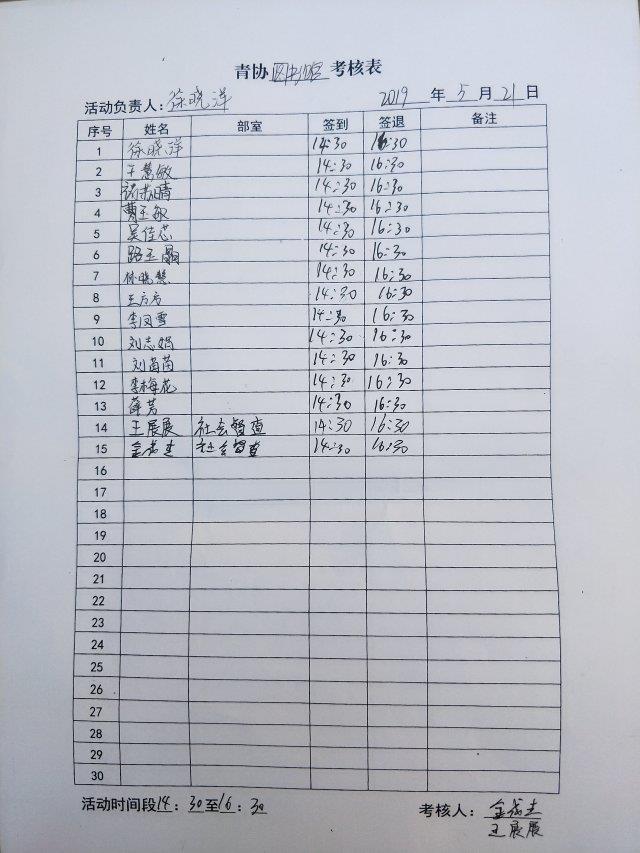 青协 图书馆 考核表
活动负责人: 徐晓洋 2019 年 5 月 21 日
序号 姓名 部室 签到 签退 备注
1 徐晓洋 14:30 16:30
2 王慧敏 14:30 16:30
3 晴 14:30 16:30
4 曹玉敏 14:30 16:30
5 吴佳芯 14:30 16:30
6 路玉 14:30 16:30
7 徐晓慧 14:30 16:30
8 王方方 14:30 16:30
9 李凤雪 14:30 16:30
10 刘志娟 14:30 16:30
11 刘苗苗 14:30 16:30
12 李梅花 14:30 16:30
13 薛芳 14:30 16:30
14 王展展 社会督查 14:30 16:30
15 金 社会督查 14:30 16:30
16
17
18
19
20
21
22
23
24
25
26
27
28
29
30
活动时间段14: 30至16: 30 考核人: 金
王展展